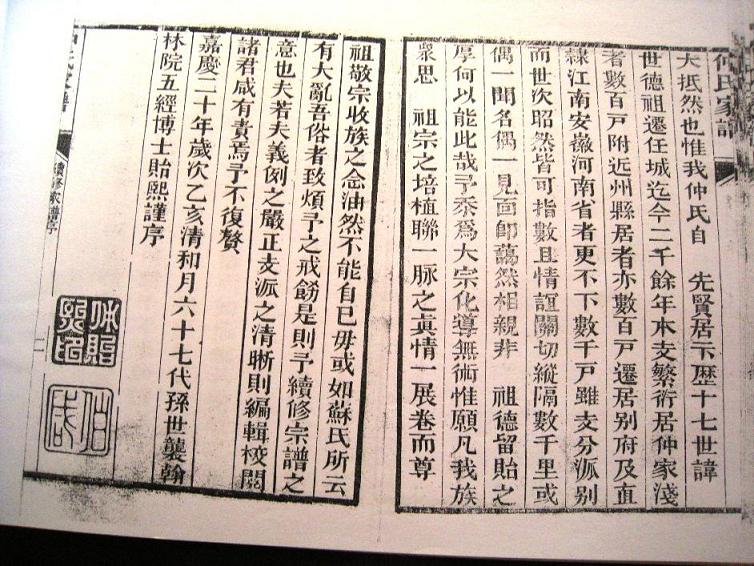 仲氏家譜
大抵然也惟我仲氏自　先賢居卞歷十七世諱
世德祖遷任城迄今二千餘年本支繁衍居仲家淺
者數百戶附近州縣居者亦數百戶遷居别府及直
隸江南安徽河南省者更不下數千戶雖支分派别
而世次昭然皆可指數且情誼關切縱隔數千里或
偶一聞名偶一見面即藹然相親非　祖德留貽之
厚何以能此哉予忝爲大宗化導無術惟願凡我族
衆思　祖宗之培植聯一脉之眞情一展卷而尊
祖敬宗收族之念油然不能自已毋或如蘇氏所云
有大亂吾俗者致煩予之戒飭是則予續修宗譜之
意也夫若夫義例之嚴正支派之清晰則編輯校閱
諸君咸有責焉予不復贅
嘉慶二十年歲次乙亥清和月六十七代孫世襲翰
林院五經博士貽熙謹序
續修家譜序